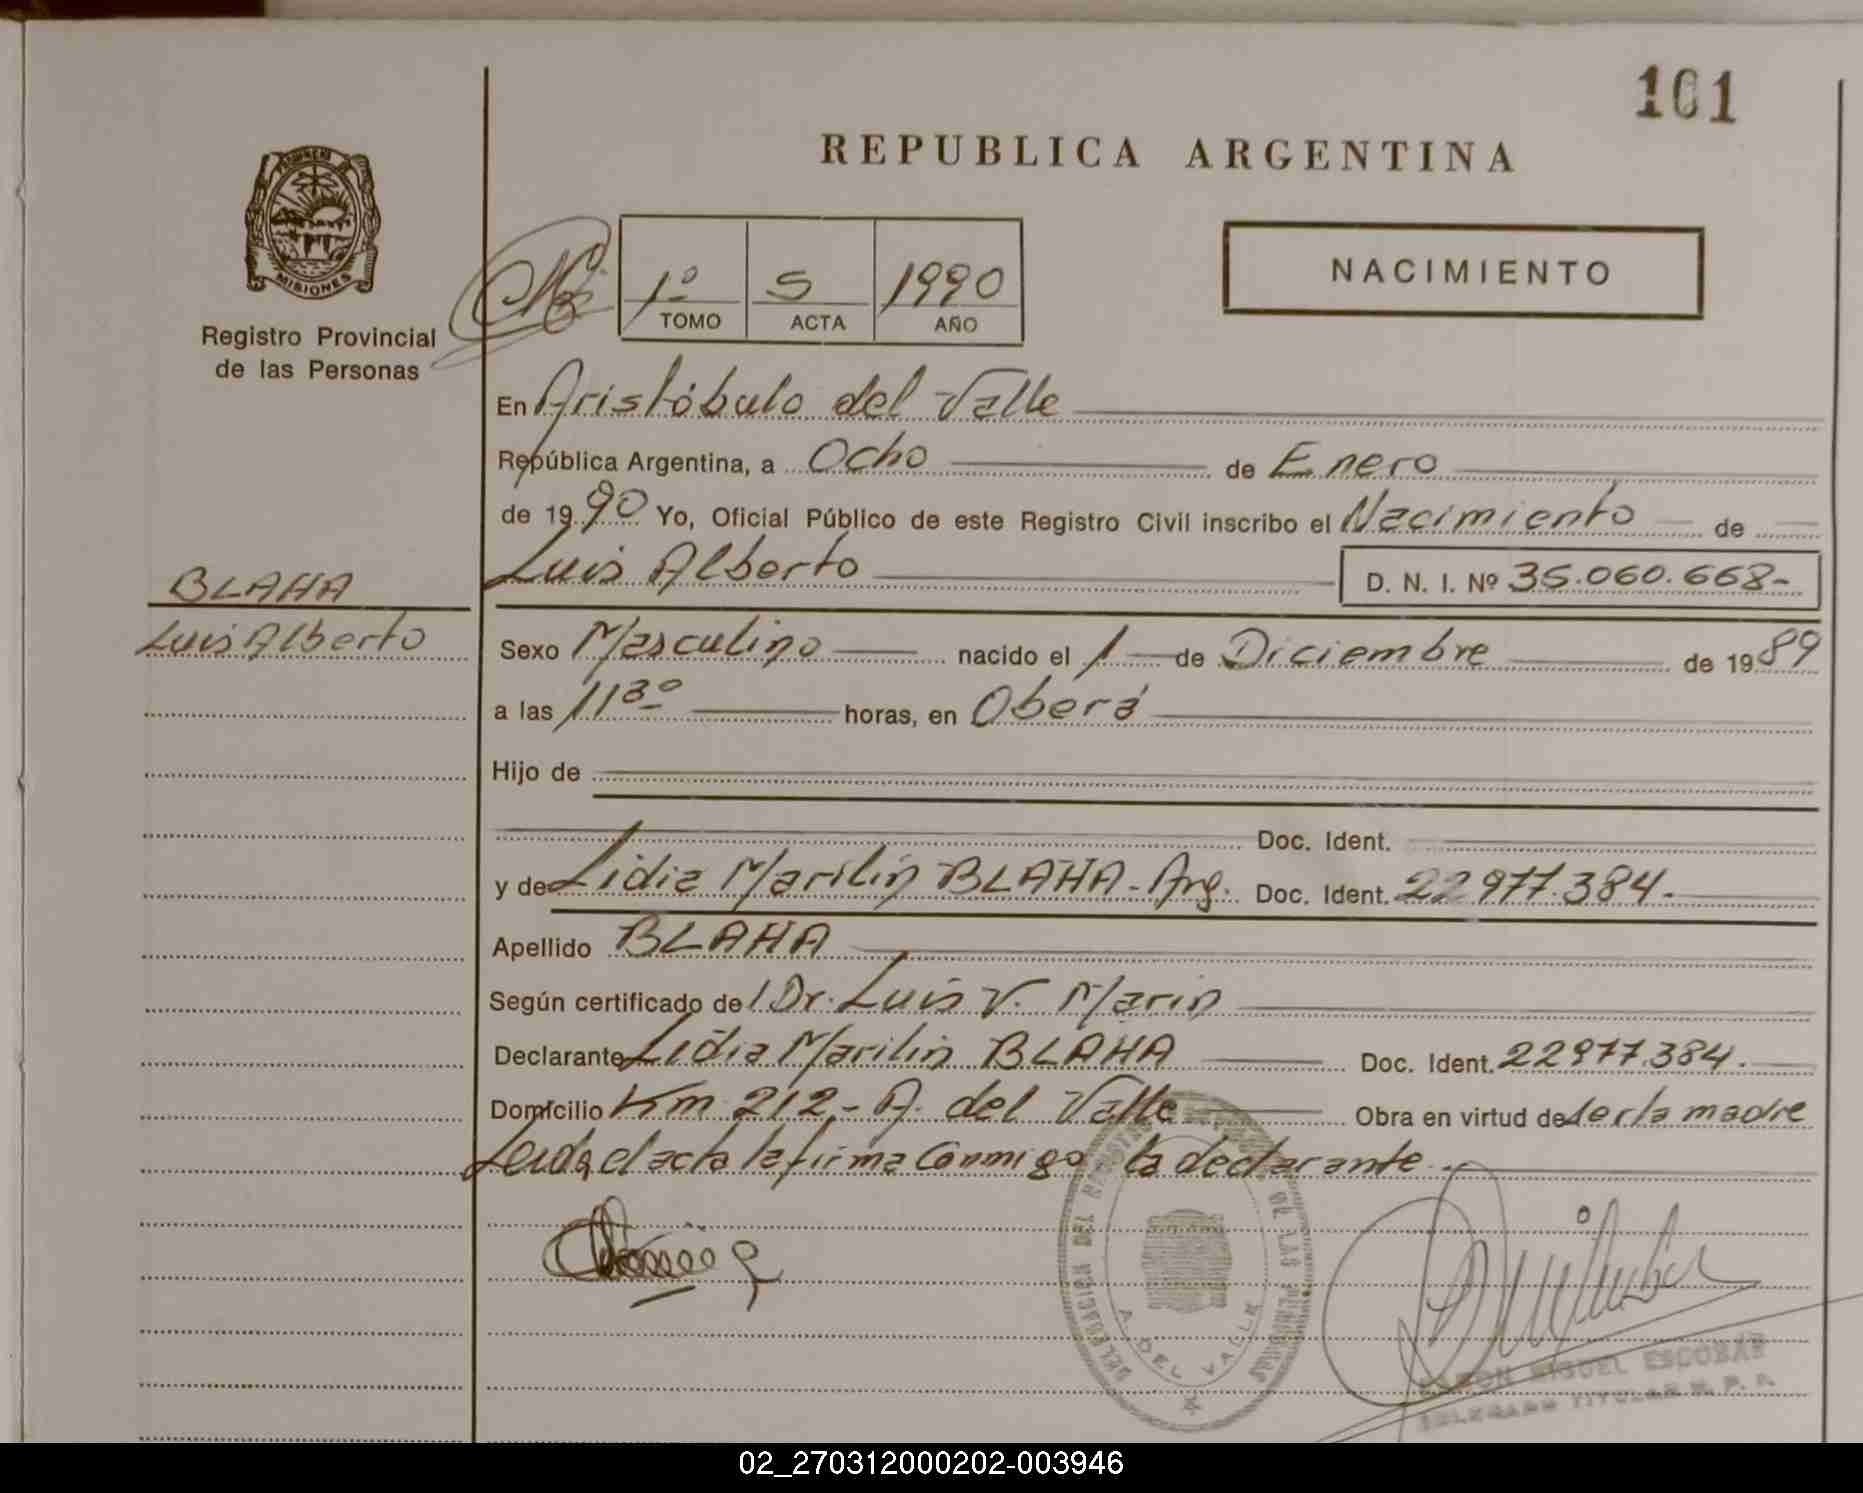 101
REPUBLICA ARGENTINA
MISIONES
Registro Provincial
de las Personas
1º S 1990
TOMO ACTA AÑO
NACIMIENTO
En Aristóbulo del Valle
República Argentina, a Ocho de Enero
de 1990 Yo, Oficial Público de este Registro Civil inscribo el Nacimiento de
Luis Alberto D. N. I. Nº 35.060.668-
BLAHA
Luis Alberto
Sexo Masculino nacido el 1 de Diciembre de 1989
a las 11 30 horas, en Oberá
Hijo de
Doc. Ident.
y de Lidia Marilin BLAHA - Arg. Doc. Ident. 22977.384.
Apellido BLAHA
Según certificado del Dr. Luis V. Marin
Declarante Lidia Marilin BLAHA Doc. Ident. 22977.384.
Domicilio Km 212 - A. del Valle Obra en virtud de ser la madre
Leida el acta la firma Conmigo la declarante.
DELEGACION DEL REGISTRO DE LAS PERSONAS
A. DEL VALLE
RAMON MIGUEL ESCOBAR
DELEGADO TITULAR R. P. P.
02_270312000202-003946